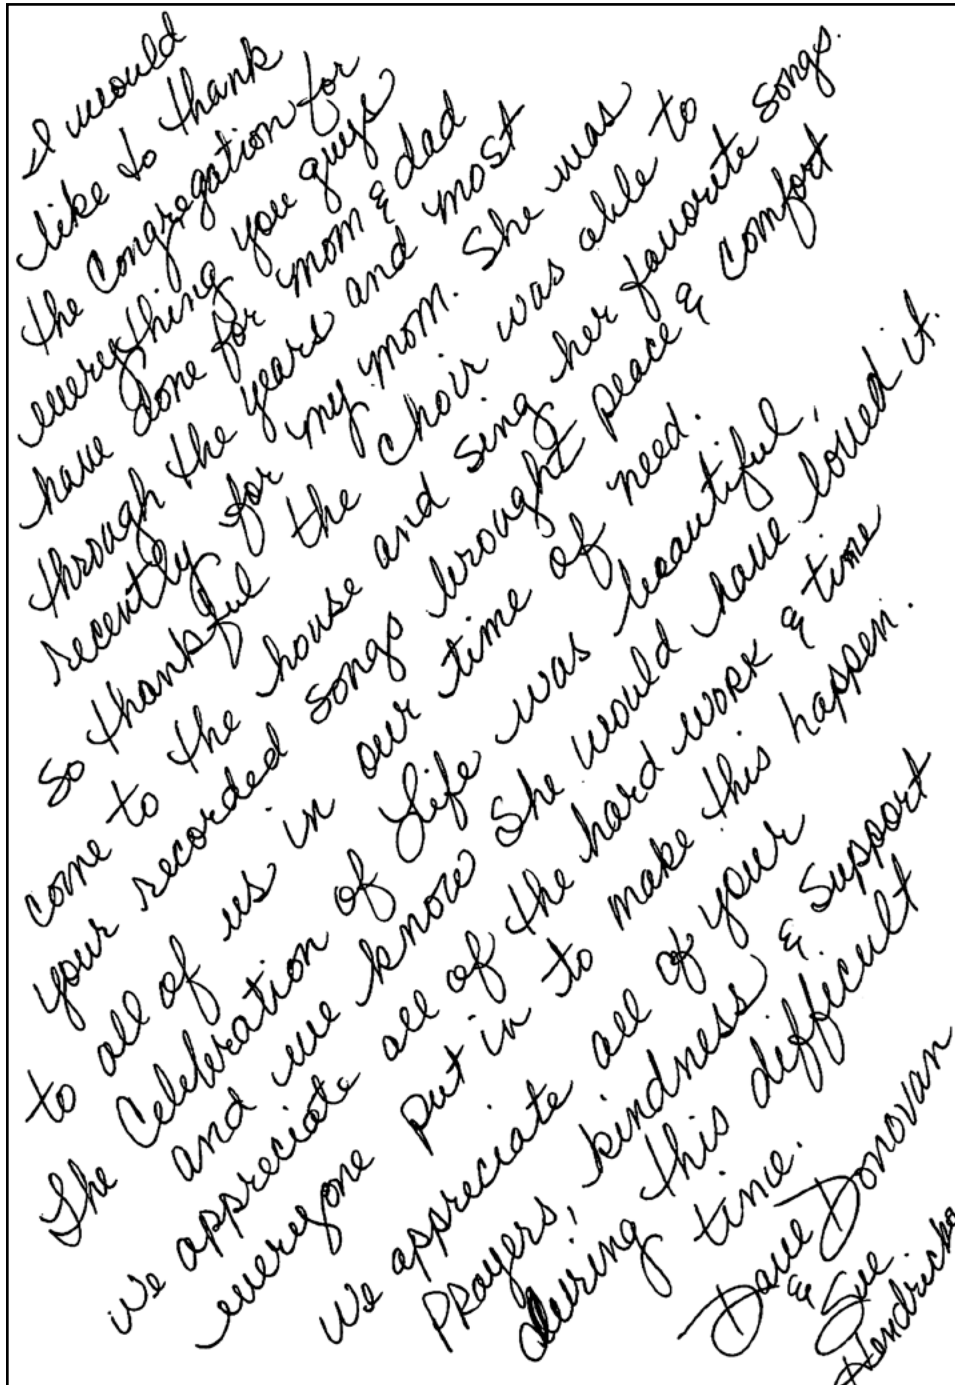 I would
like to thank
the congregation for
everything you guys
have done for mom & dad
through the years and most
recently for my mom. She was
so thankful the choir was able to
come to the house and sing her favorite songs.
your recorded songs brought peace & comfort
to all of us in our time of need.
The Celebration of Life was beautiful,
and we know she would have loved it.
We appreciate all of the hard work & time
everyone put in to make this happen.
We appreciate all of your
Prayers, kindness & support
during this difficult
time.
Dave Donovan
& Sue
Hendricks